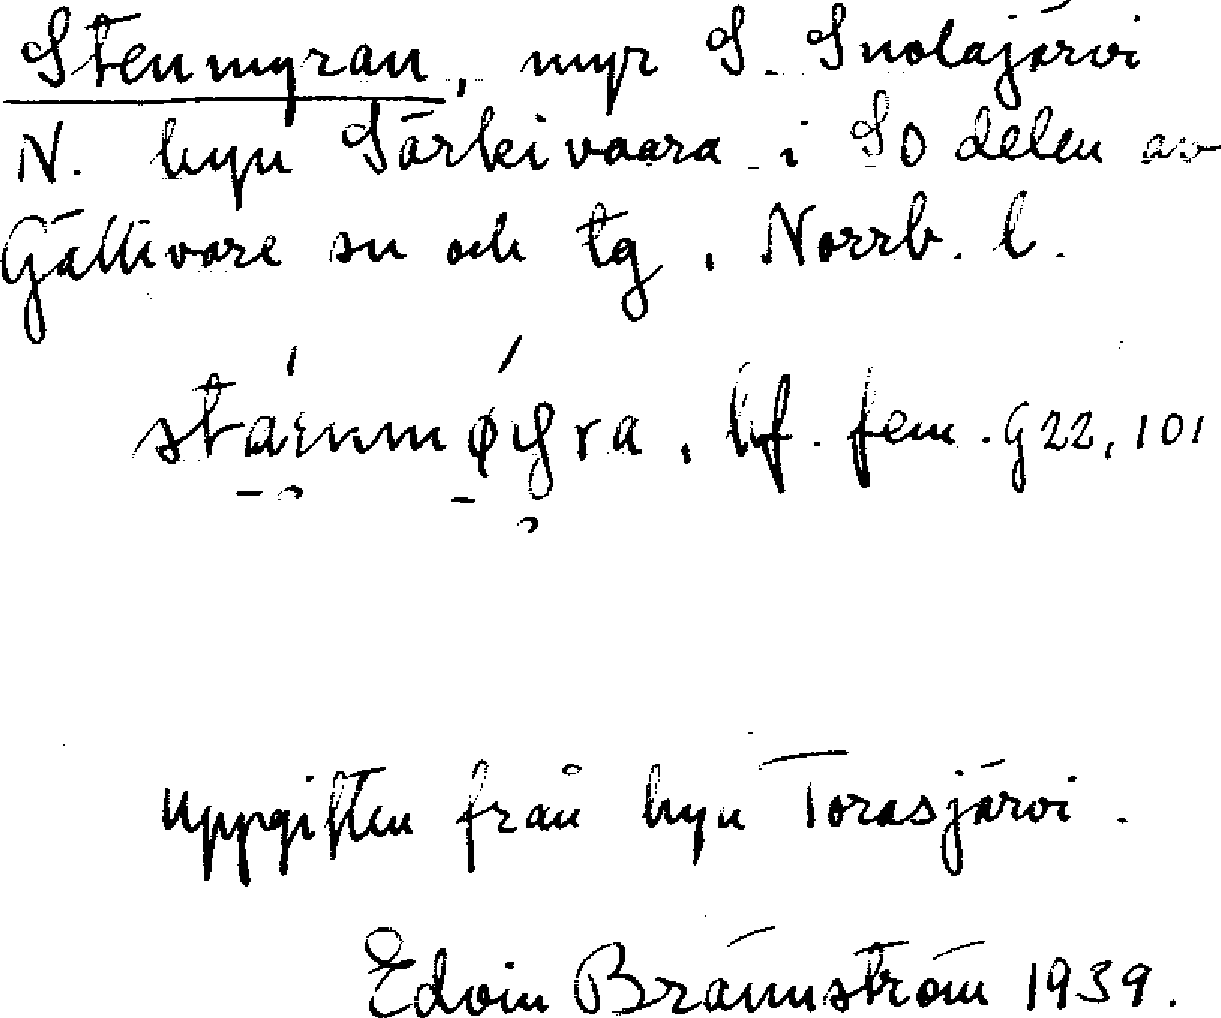 Stenmyran, myr S. Suolajärvi
N. byn Särkivaara i SO delen av
Gällivare sn och tg, Norrb. l.
bf. fem. G 22, 101
Uppgiften från byn Torasjärvi.
Edvin Brännström 1939.